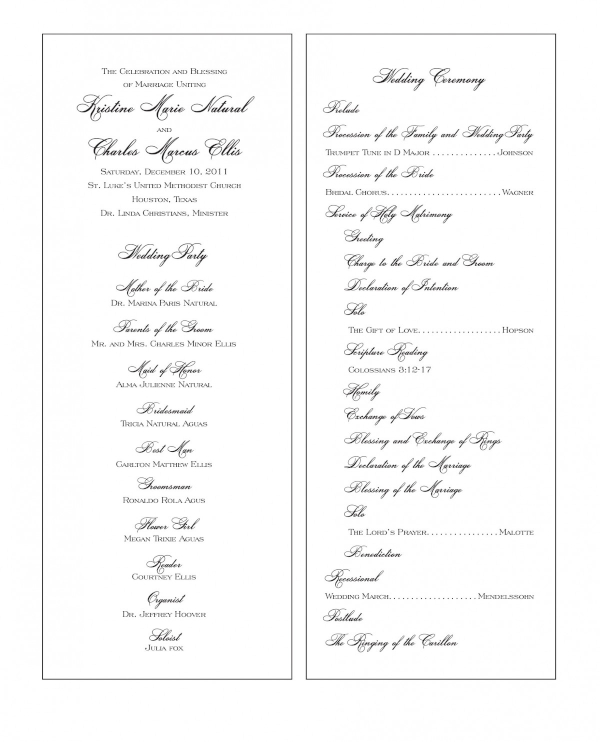 The Celebration and Blessing
of Marriage Uniting
Kristine Marie Natural
and
Charles Marcus Ellis
Saturday, December 10, 2011
St. Luke's United Methodist Church
Houston, Texas
Dr. Linda Christians, Minister
Wedding Party
Mother of the Bride
Dr. Marina Paris Natural
Parents of the Groom
Mr. and Mrs. Charles Minor Ellis
Maid of Honor
Alma Julienne Natural
Bridesmaid
Tricia Natural Aguas
Best Man
Carlton Matthew Ellis
Groomsman
Ronaldo Rola Agus
Flower Girl
Megan Trixie Aguas
Reader
Courtney Ellis
Organist
Dr. Jeffrey Hoover
Soloist
Julia fox
Wedding Ceremony
Prelude
Procession of the Family and Wedding Party
Trumpet Tune in D Major . . . . . . . . . . . . . . Johnson
Procession of the Bride
Bridal Chorus. . . . . . . . . . . . . . . . . . . . . . . . Wagner
Service of Holy Matrimony
Greeting
Charge to the Bride and Groom
Declaration of Intention
Solo
The Gift of Love. . . . . . . . . . . . . . . . . . Hopson
Scripture Reading
Colossians 3:12-17
Homily
Exchange of Vows
Blessing and Exchange of Rings
Declaration of the Marriage
Blessing of the Marriage
Solo
The Lord's Prayer. . . . . . . . . . . . . . . Malotte
Benediction
Recessional
Wedding March. . . . . . . . . . . . . . . . . . . . Mendelssohn
Postlude
The Ringing of the Carillon